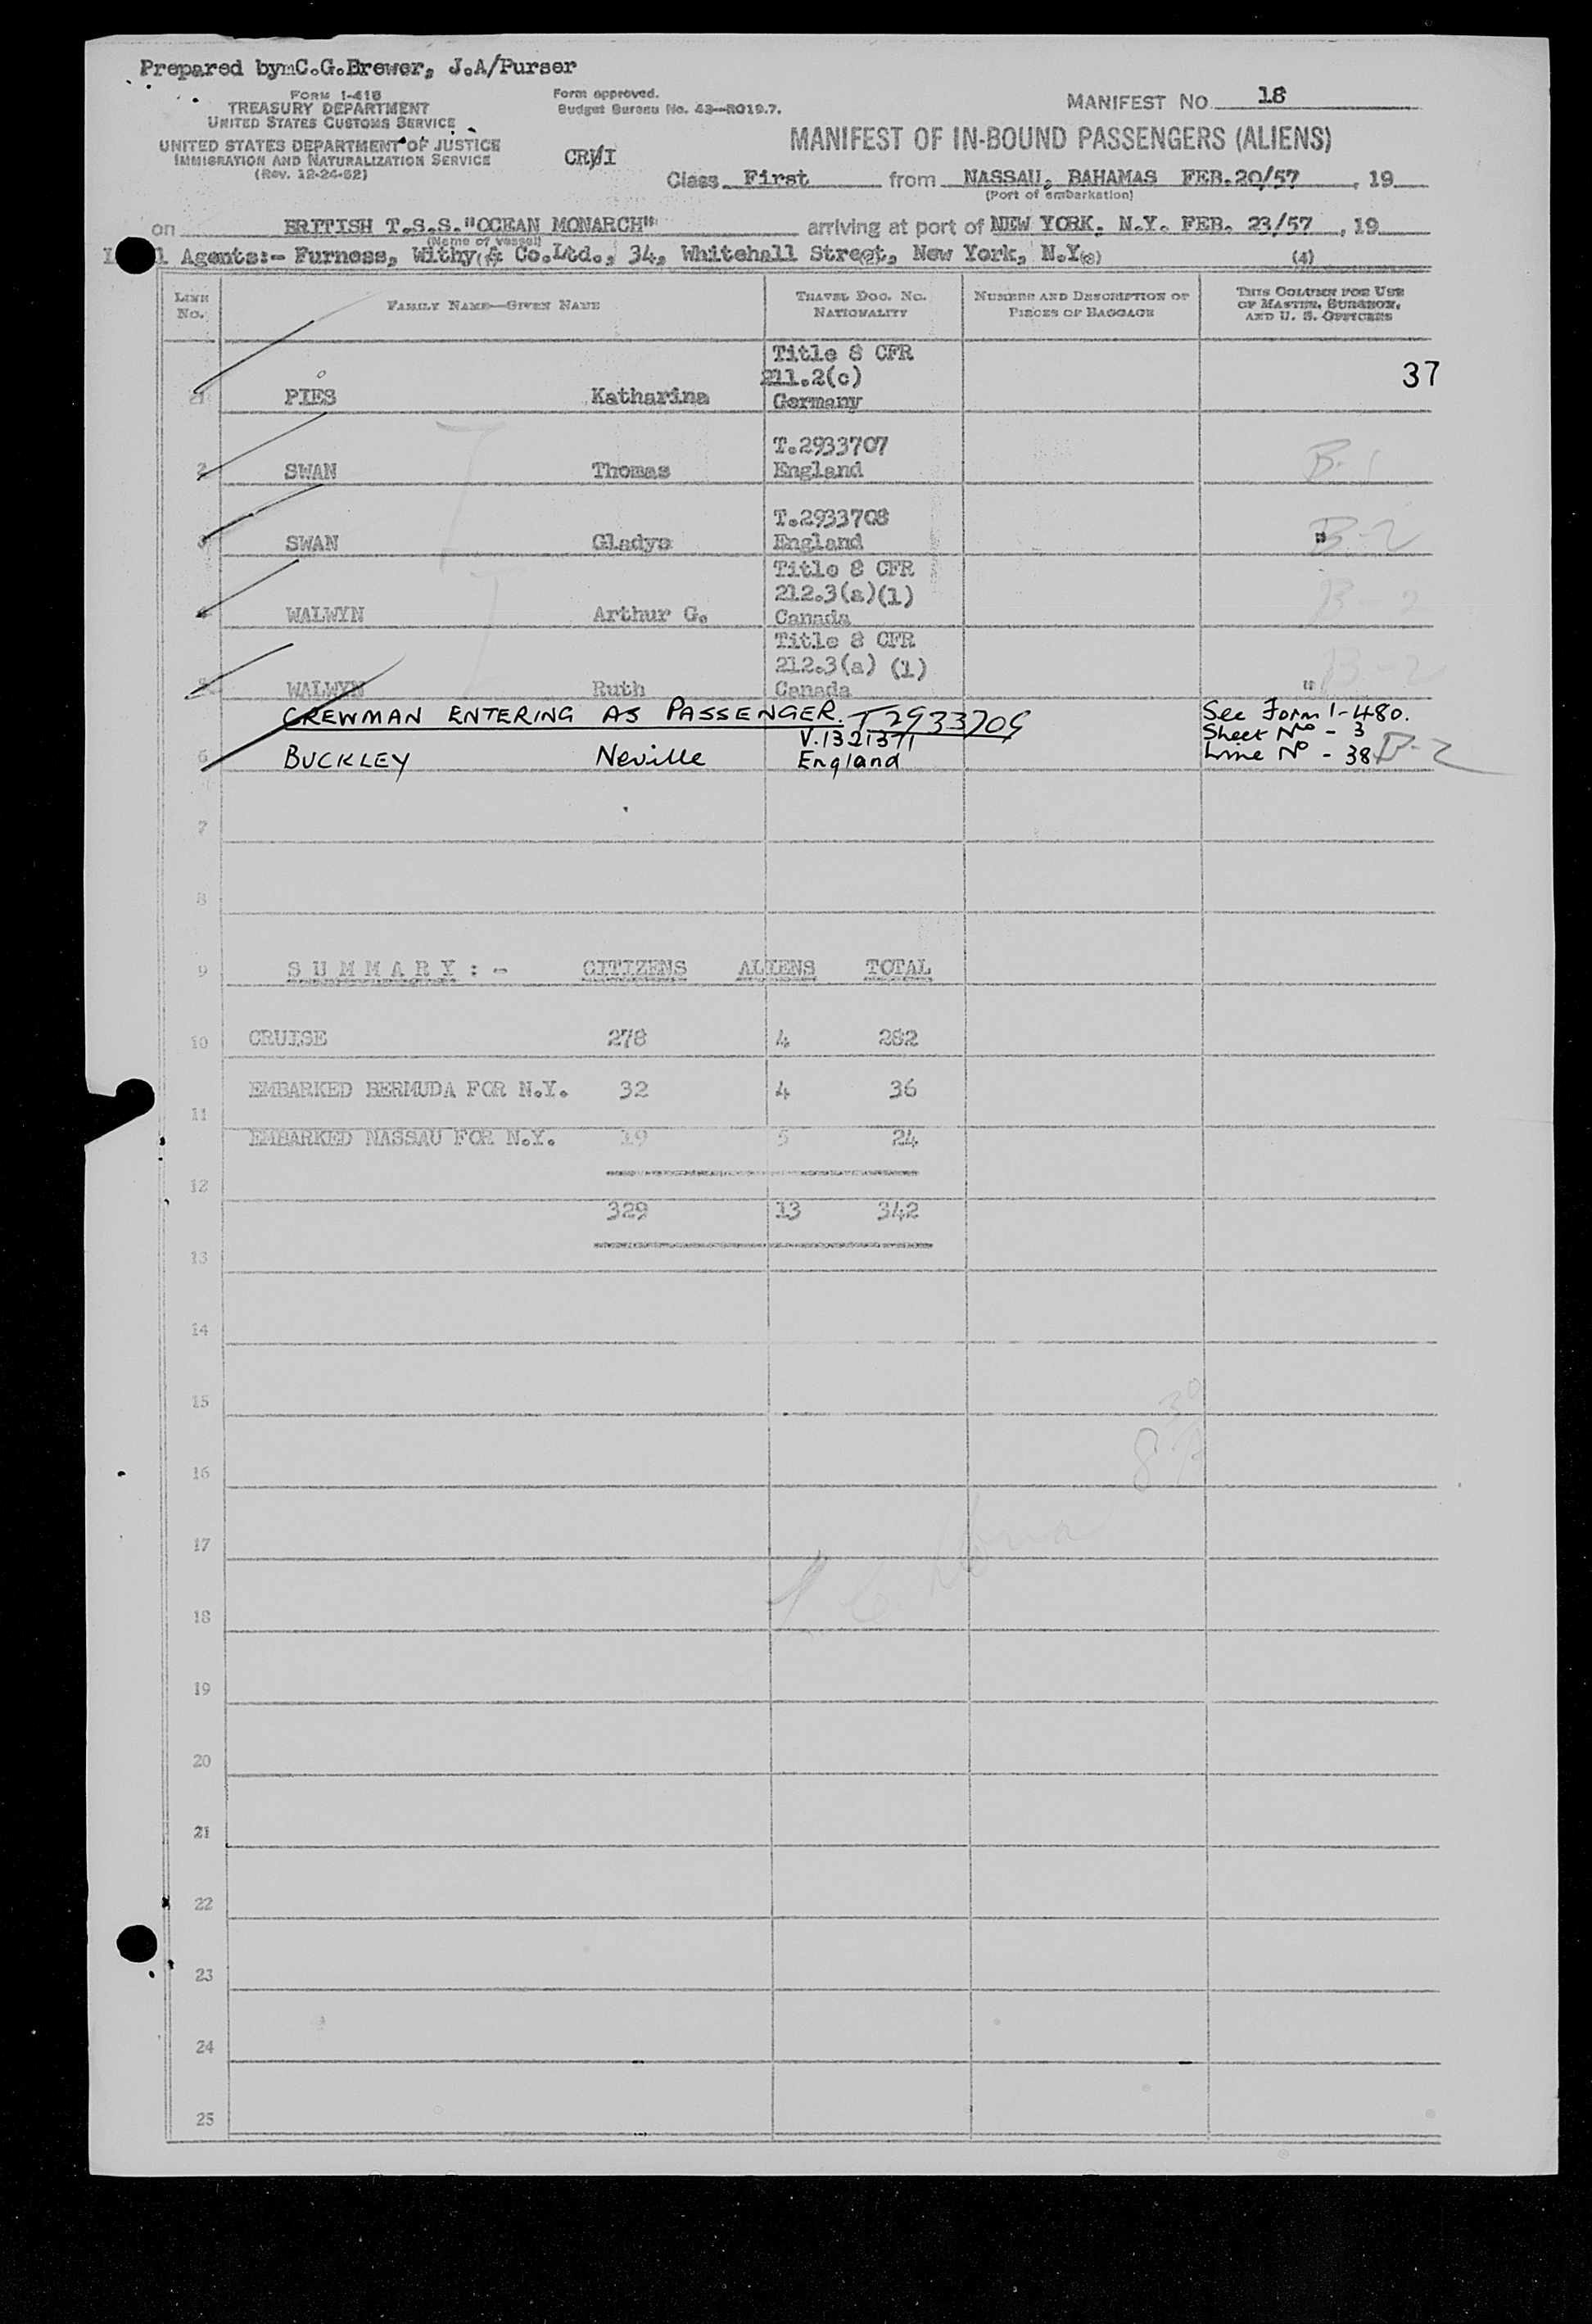 Prepared bymC.G.Brewer, J.A/Purser
FORM I-418
TREASURY DEPARTMENT
UNITED STATES CUSTOMS SERVICE
UNITED STATES DEPARTMENT OF JUSTICE
IMMIGRATION AND NATURALIZATION SERVICE
(Rev. 12-24-52)
Form approved.
Budget Bureau No. 43—R019.7.
MANIFEST NO 18
MANIFEST OF IN-BOUND PASSENGERS (ALIENS)
Class First from NASSAU, BAHAMAS FEB.20/57, 19
(Port of embarkation)
on BRITISH T.S.S."OCEAN MONARCH" arriving at port of NEW YORK, N.Y. FEB. 23/57, 19
(Name of vessel)
Agents:- Furness, Withy & Co.Ltd., 34, Whitehall Street, New York, N.Y. (3) (4)
LINE No. FAMILY NAME—GIVEN NAME TRAVEL DOC. NO. NATIONALITY NUMBER AND DESCRIPTION OF PIECES OF BAGGAGE THIS COLUMN FOR USE OF MASTER, SURGEON, AND U. S. OFFICERS
Title 8 CFR
211.2(c) 37
PIES Katharina Germany
T.2933707
2 SWAN Thomas England B-1
T.2933708
3 SWAN Gladys England " B-2
Title 8 CFR
212.3(a)(1)
WALWYN Arthur G. Canada B-2
Title 8 CFR
212.3(a) (1)
WALWYN Ruth Canada " B-2
CREWMAN ENTERING AS PASSENGER. T2933709 See Form 1-480.
V.1321371 Sheet No - 3
6 BUCKLEY Neville England Line No - 38 B-2
7
8
9 S U M M A R Y : - CITIZENS ALIENS TOTAL
10 CRUISE 278 4 282
EMBARKED BERMUDA FOR N.Y. 32 4 36
11
EMBARKED NASSAU FOR N.Y. 19 5 24
12
329 13 342
13
14
15
16
17
18
19
20
21
22
23
24
25